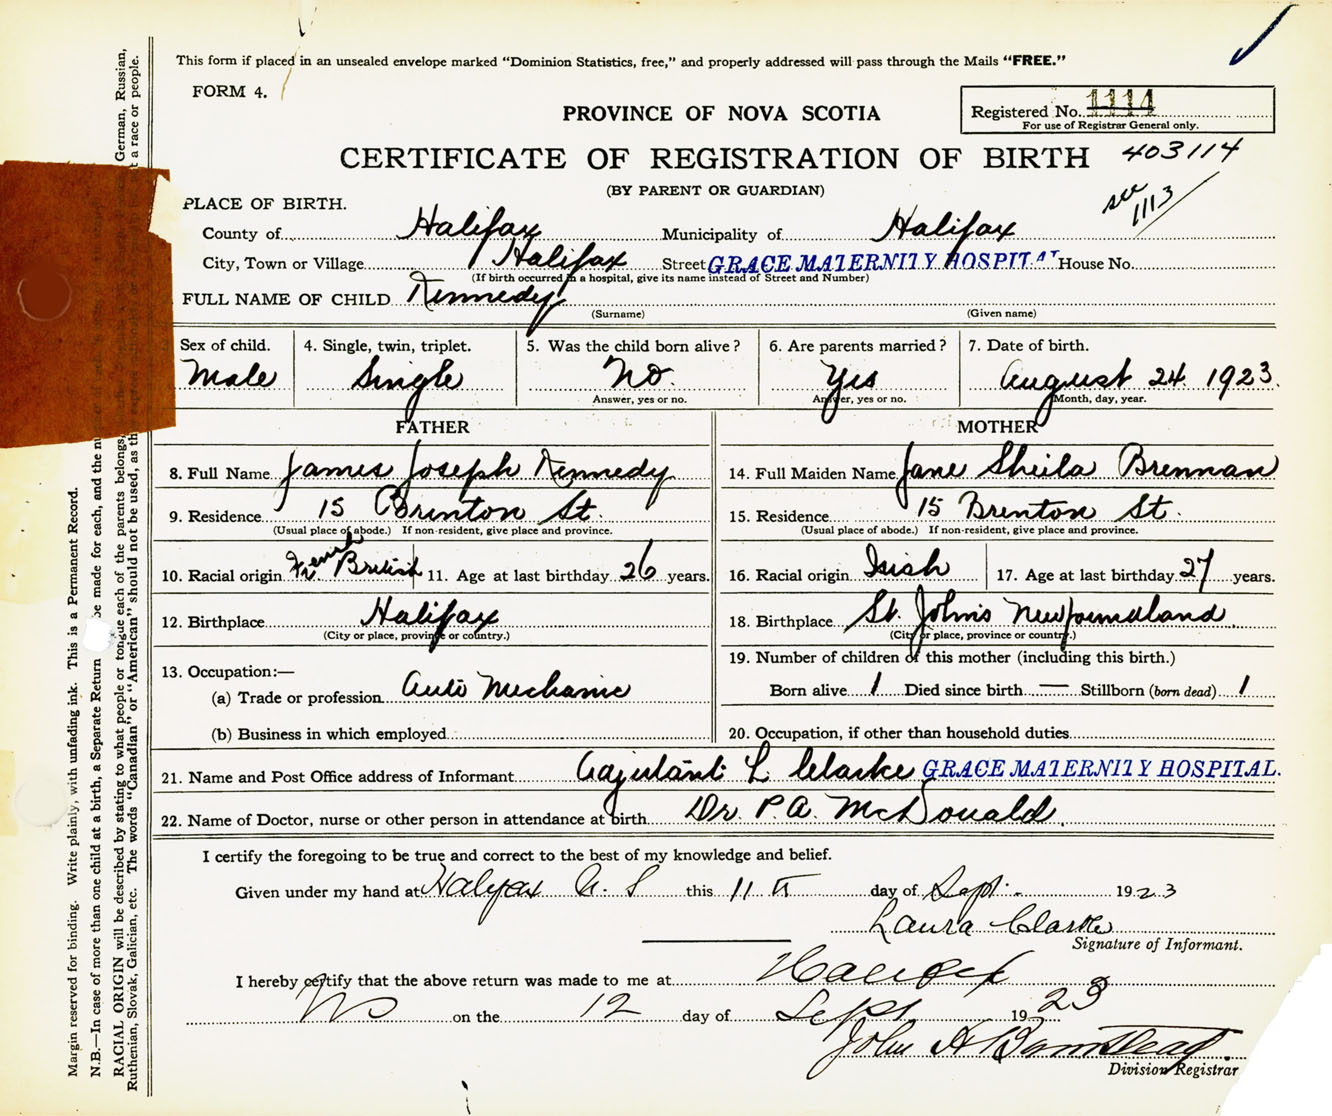 This form if placed in an unsealed envelope marked "Dominion Statistics, free," and properly addressed will pass through the Mails "FREE."
FORM 4.
PROVINCE OF NOVA SCOTIA
Registered No. 1114
For use of Registrar General only.
CERTIFICATE OF REGISTRATION OF BIRTH 403114
(BY PARENT OR GUARDIAN)
see 1113
PLACE OF BIRTH.
County of Halifax Municipality of Halifax
City, Town or Village Halifax Street GRACE MATERNITY HOSPITAL House No.
(If birth occurred in a hospital, give its name instead of Street and Number)
FULL NAME OF CHILD Kennedy
(Surname) (Given name)
Sex of child. 4. Single, twin, triplet. 5. Was the child born alive? 6. Are parents married? 7. Date of birth.
Male Single No. Yes August 24 1923.
Answer, yes or no. Answer, yes or no. Month, day, year.
FATHER MOTHER
8. Full Name James Joseph Kennedy 14. Full Maiden Name Jane Sheila Brennan
9. Residence 15 Brenton St. 15. Residence 15 Brenton St.
(Usual place of abode.) If non-resident, give place and province. (Usual place of abode.) If non-resident, give place and province.
10. Racial origin French British 11. Age at last birthday 26 years. 16. Racial origin Irish 17. Age at last birthday 27 years.
12. Birthplace Halifax 18. Birthplace St. John's Newfoundland
(City or place, province or country.) (City or place, province or country.)
13. Occupation:— 19. Number of children of this mother (including this birth.)
(a) Trade or profession Auto Mechanic Born alive 1 Died since birth — Stillborn (born dead) 1
(b) Business in which employed 20. Occupation, if other than household duties
21. Name and Post Office address of Informant Adjutant L Clarke GRACE MATERNITY HOSPITAL.
22. Name of Doctor, nurse or other person in attendance at birth Dr. P. A. McDonald
I certify the foregoing to be true and correct to the best of my knowledge and belief.
Given under my hand at Halifax N. S this 11th day of Sept. 1923
Laura Clarke
Signature of Informant.
I hereby certify that the above return was made to me at Halifax
NS on the 12 day of Sept 1923
John A Barnstead
Division Registrar
Margin reserved for binding. Write plainly, with unfading ink. This is a Permanent Record.
N.B.—In case of more than one child at a birth, a Separate Return be made for each, and the
RACIAL ORIGIN will be described by stating to what people or tongue each of the parents belongs, German, Russian,
Ruthenian, Slovak, Galician, etc. The words "Canadian" or "American" should not be used, as a race or people.